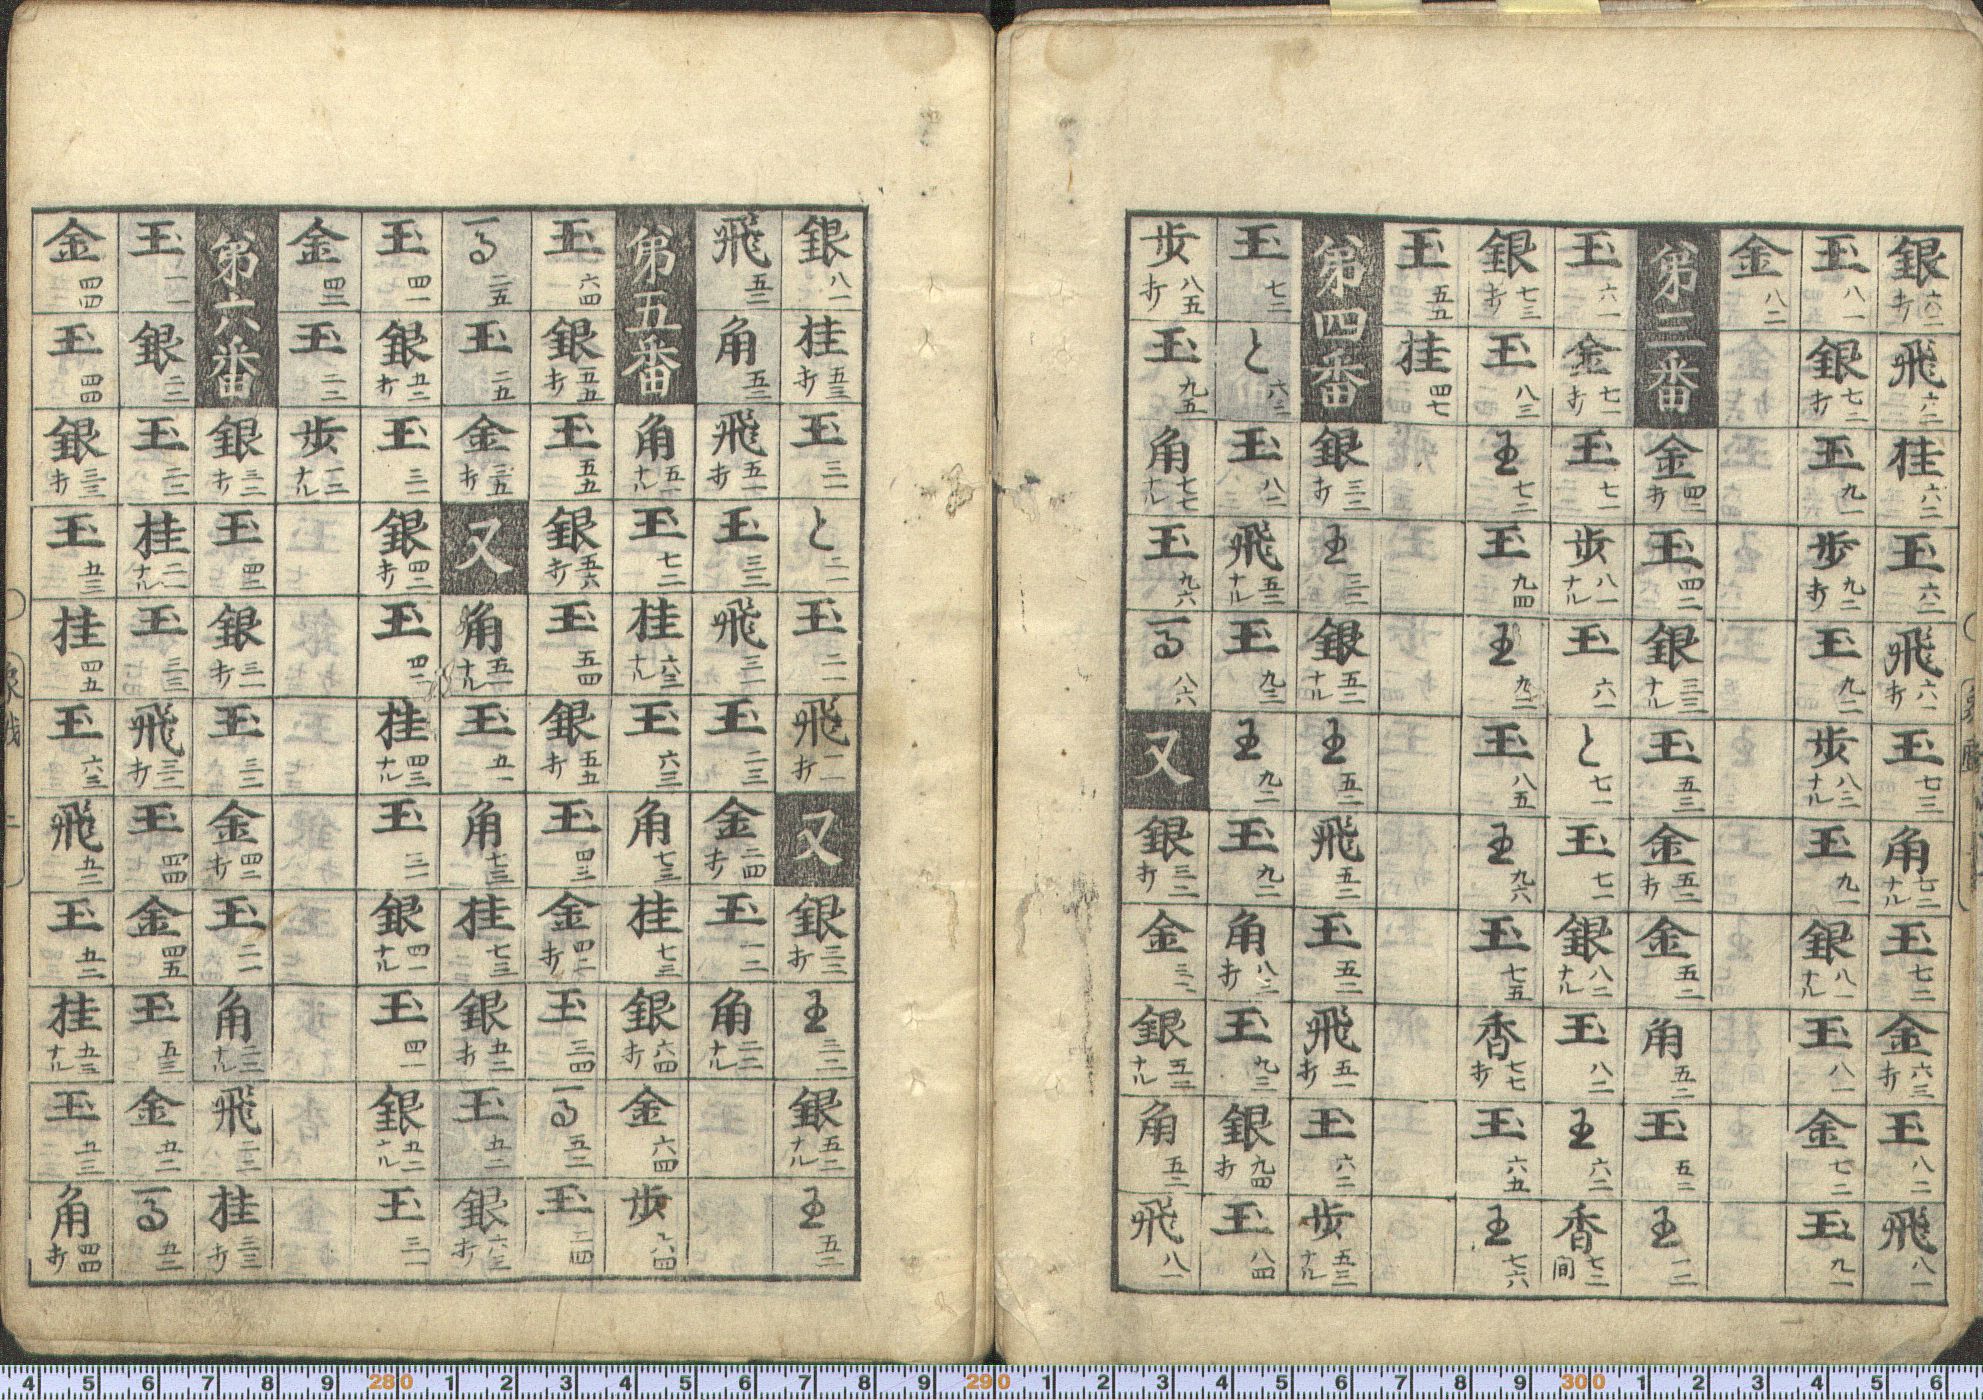 銀六二打 飛六二 桂六二 玉六二 飛六一打 玉七三 角七二ナル 玉七二 金六三打 玉八二 飛八一
玉八一 銀七二打 玉九一 歩九二打 玉九二 歩八三ナル 玉九一 銀八一ナル 玉八一 金七二 玉九一
金八二
第三番 金四二打 玉四二 銀三三ナル 玉五三 金五二打 金五二 角五二 玉五二 王一二
玉六一 金七一打 玉七一 歩八一ナル 玉六一 と七一 玉七一 銀八二ナル 玉八二 王六二 香七二間
銀七三打 玉八三 王七二 玉九四 王九二 玉八五 王九六 玉七五 香七七打 玉六五 王七六
玉五五 桂四七
第四番 銀三二打 王三二 銀五二ナル 王五二 飛五二 玉五二 飛五一打 玉六二 歩五三ナル
玉七二 と六二 玉八二 飛五二ナル 玉九三 王九二 玉九二 角八二打 玉九三 銀九四打 玉八四
歩八五打 玉九五 角七七ナル 玉九六 馬八六 又 銀三二打 金三二 銀五二ナル 角五二 飛八一
銀八一 桂五三打 玉三一 と二一 玉二一 飛一一打 又 銀三二打 王三二 銀五二ナル 王五二
飛五二 角五二 飛五一打 玉三三 飛三一 玉二三 金二四打 玉一二 角二二ナル
第五番 角五一ナル 玉七二 桂六三ナル 玉六三 角七三 桂七三 銀六四打 金六四 歩六四
玉六四 銀五五打 玉五五 銀五六打 玉五四 銀五五打 玉四三 金四二打 玉三四 馬五二 玉二四
馬二五 玉二五 金三五打 又 角五一ナル 玉五一 角七三 桂七三 銀五二打 玉五二 銀六三打
玉四一 銀五二打 玉三一 銀四二打 玉四二 桂四三ナル 玉三一 銀四一ナル 玉四一 銀五二ナル 玉三一
金四二 玉二二 歩一二ナル
第六番 銀三二打 玉四二 銀三一打 玉三二 金四二打 玉二一 角二二ナル 飛二二 桂三三打
玉一一 銀二二 玉二二 桂二一ナル 玉三三 飛三二打 玉四四 金四五 玉五三 金五二 馬五二
金四四 玉四四 銀三三打 玉五三 桂四五 玉六三 飛五二 玉五二 桂五三ナル 玉五三 角四四打